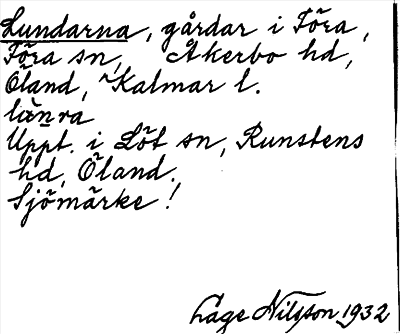 Lundarna, gårdar i Föra,
Föra sn, Åkerbo hd,
Öland, Kalmar l.
lända
Uppt. i Löt sn, Runstens
hd, Öland.
Sjömärke!
Lage Nilsson 1932